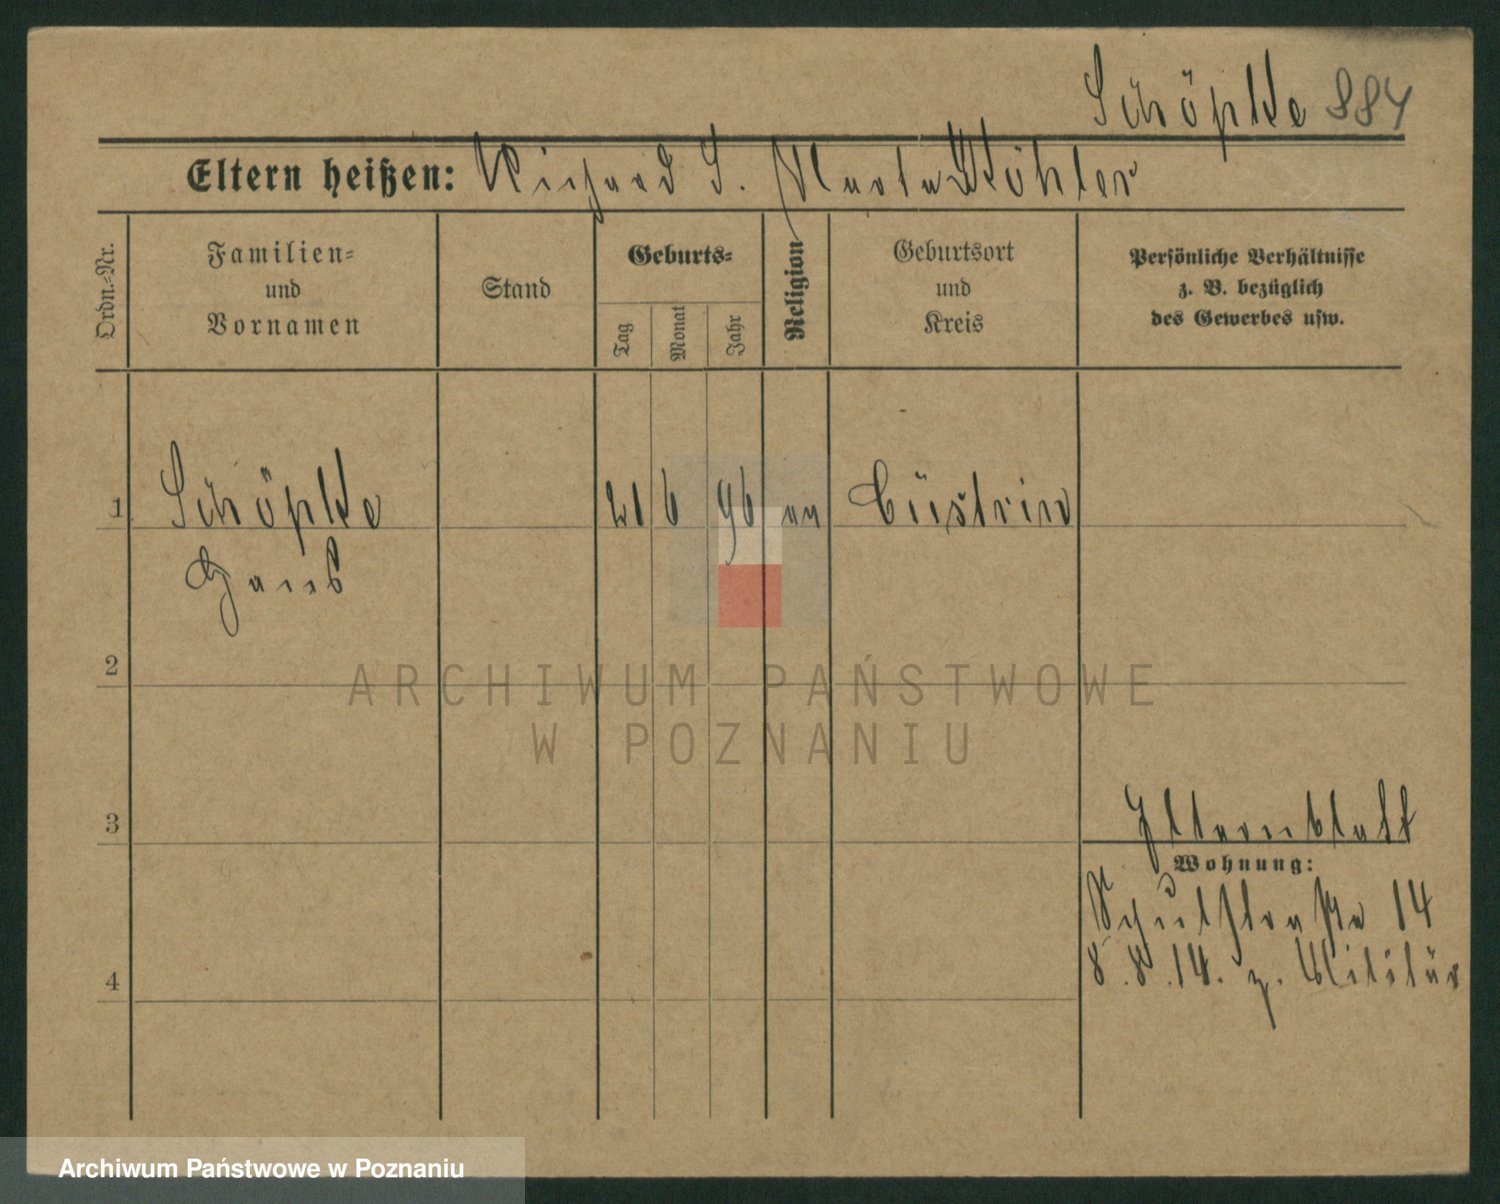 Schöpke 884
Eltern heißen: Richard S. Marta Köhler
Ordn.-Nr.
Familien-
und
Vornamen
Stand
Geburts-
Tag
Monat
Jahr
Religion
Geburtsort
und
Kreis
Persönliche Verhältnisse
z. B. bezüglich
des Gewerbes usw.
1 Schöpke 21 6 96 ev Cüstrin
Hans
2
ARCHIWUM PAŃSTWOWE
W POZNANIU
3
Elternblatt
Wohnung:
Schulstraße 14
4 8.8.14. z. Militär
Archiwum Państwowe w Poznaniu